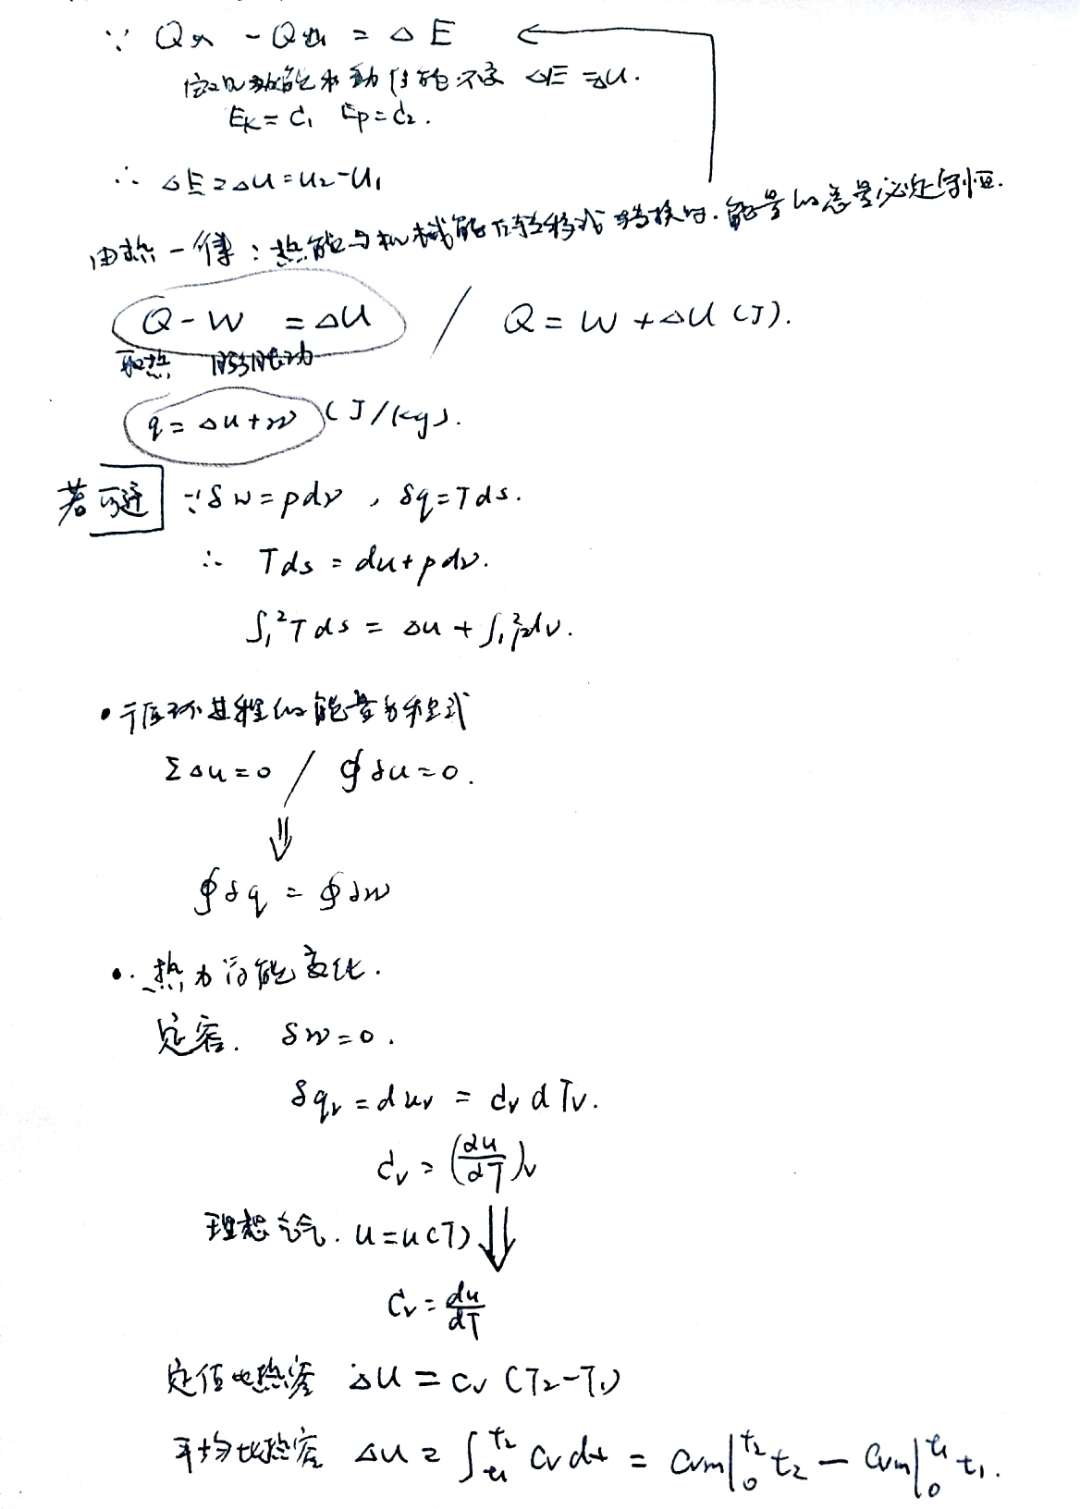 ∵ Q入 - Q出 = ΔE
宏观动能和重力位能不变 ΔE = ΔU.
Ek = C₁ Ep = C₂.
∴ ΔE = ΔU = U₂ - U₁
由热一律：热能与机械能在转移或转换时. 能量的总量必定守恒.
Q - W = ΔU / Q = W + ΔU (J).
取热 膨胀功
q = Δu + w (J/kg).
若可逆 ∵ δw = pdv , δq = Tds.
∴ Tds = du + pdv.
∫₁² Tds = Δu + ∫₁² pdv.
• 循环过程的能量方程式
ΣΔu = 0 / ∮du = 0.
⇓
∮δq = ∮δw
• 热力学能变化.
定容. δw = 0.
δqv = duv = cv dTv.
cv = (du/dT)v
理想气体. u = u(T) ⇓
Cv = du/dT
定值比热容 Δu = cv (T₂ - T₁)
平均比热容 Δu = ∫t₁t₂ cv dt = Cvm|₀t₂ t₂ - Cvm|₀t₁ t₁.